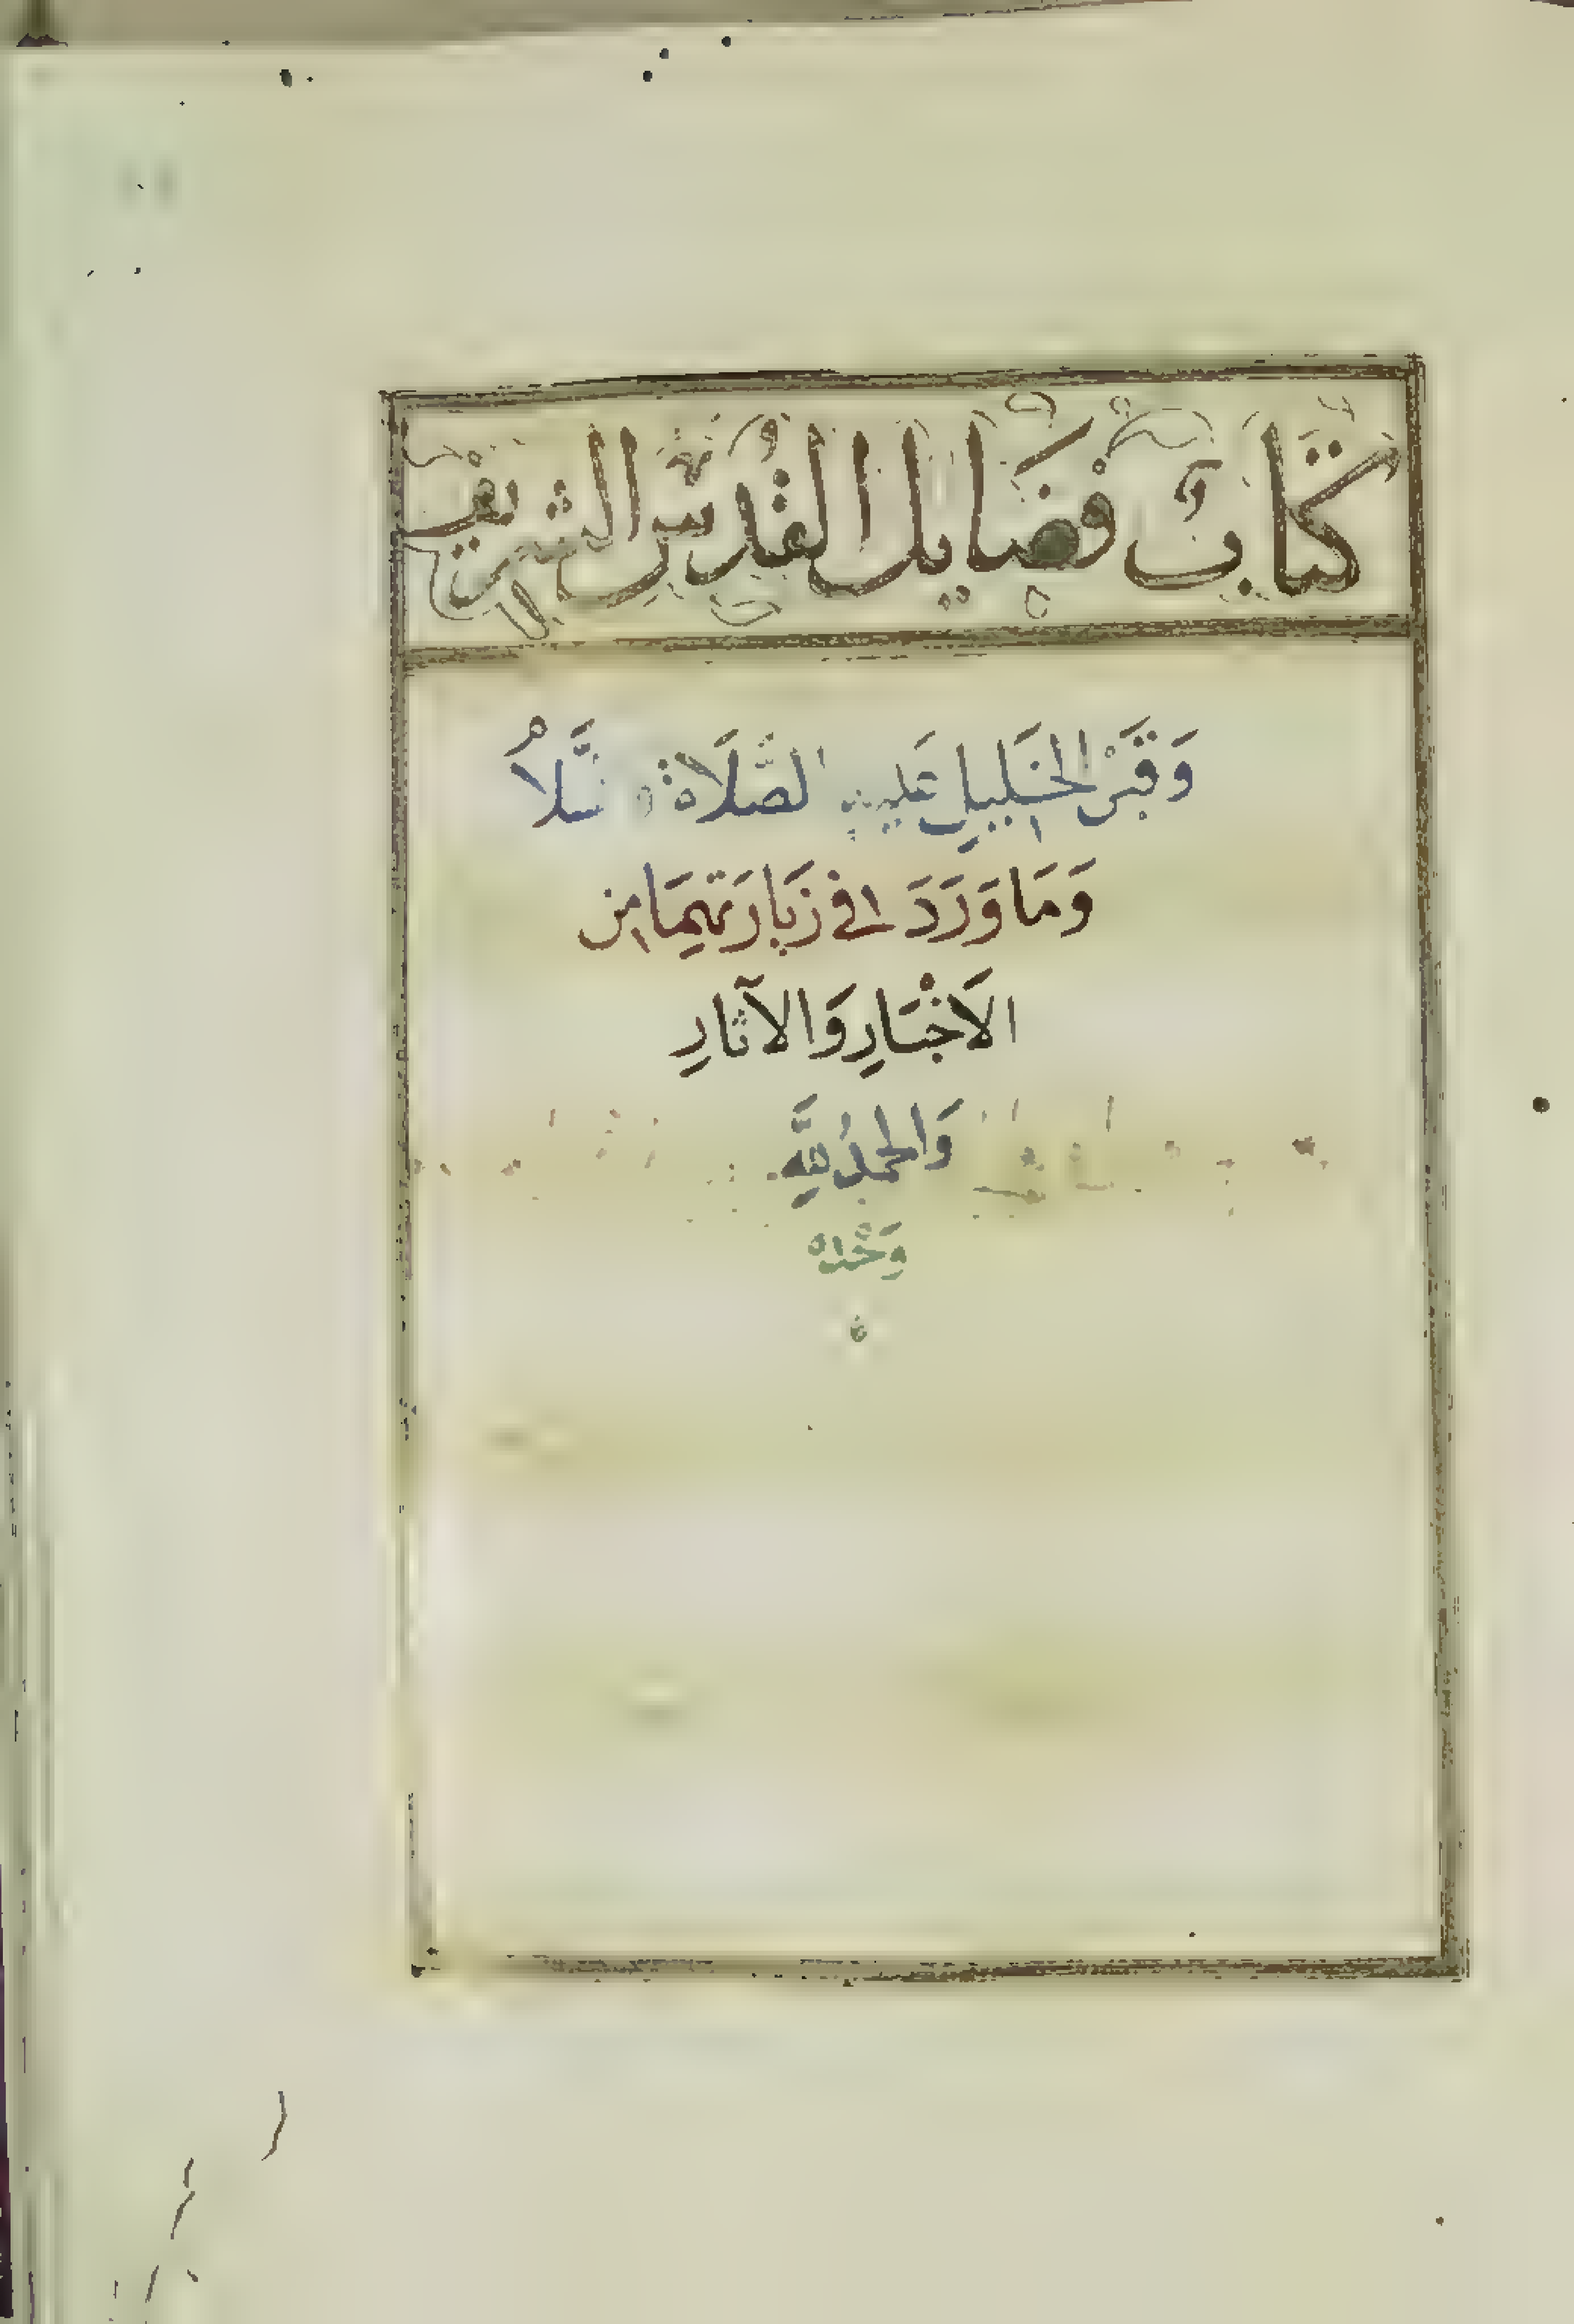 كتاب فضايل القدس الشريف
وَقَبْرِ الخَلِيلِ عَلَيهِ الصَّلَاةُ وَالسَّلَامُ
وَمَا وَرَدَ في زِيَارَتِهِمَا مِن
الاَخْبَارِ وَالآثارِ
وَالحَمدُ لِلَّهِ
وَحْدَهُ